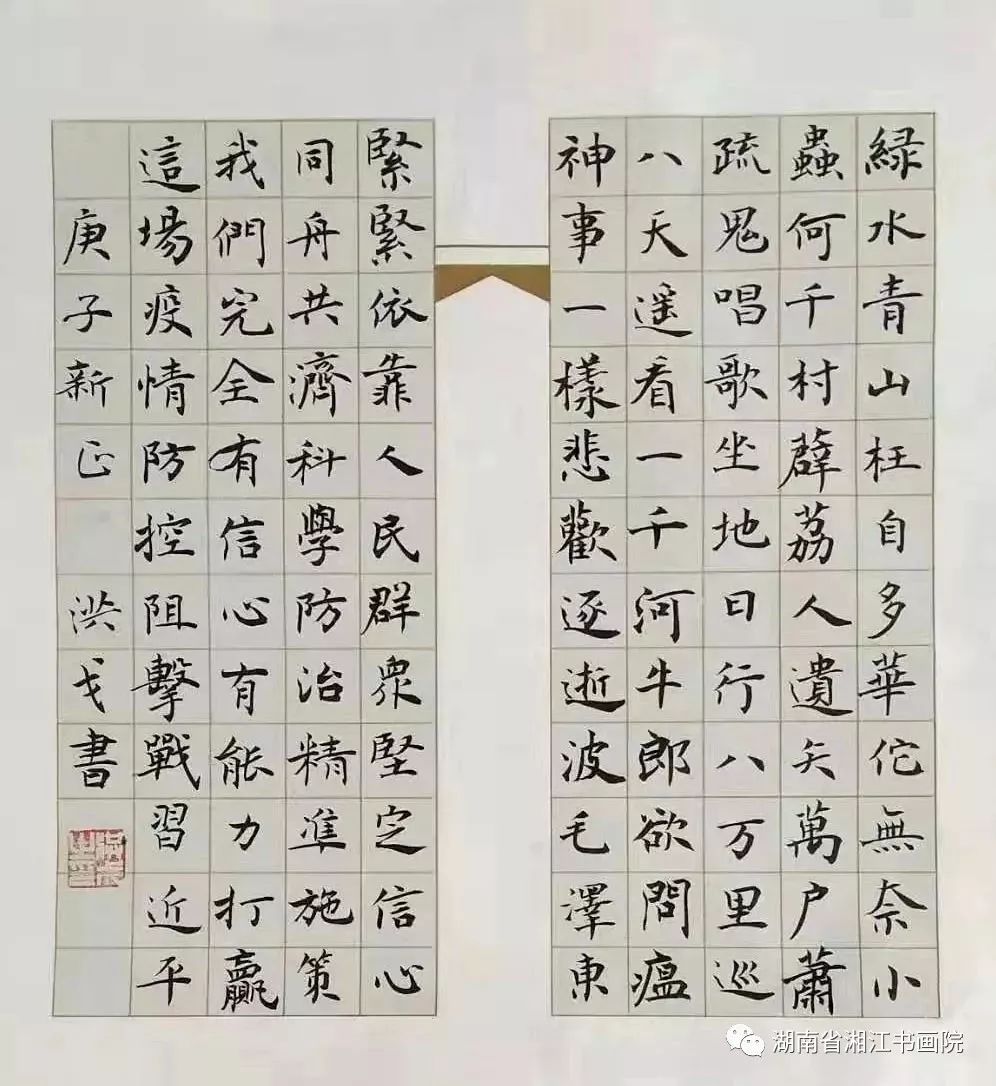 緑水青山枉自多華佗無奈小
蟲何千村薜荔人遺矢萬户蕭
疏鬼唱歌坐地日行八万里巡
八天遥看一千河牛郎欲問瘟
神事一樣悲歡逐逝波毛澤東
緊緊依靠人民群衆堅定信心
同舟共濟科學防治精準施策
我們完全有信心有能力打贏
這場疫情防控阻擊戰習近平
庚子新正 洪戈書
湖南省湘江书画院